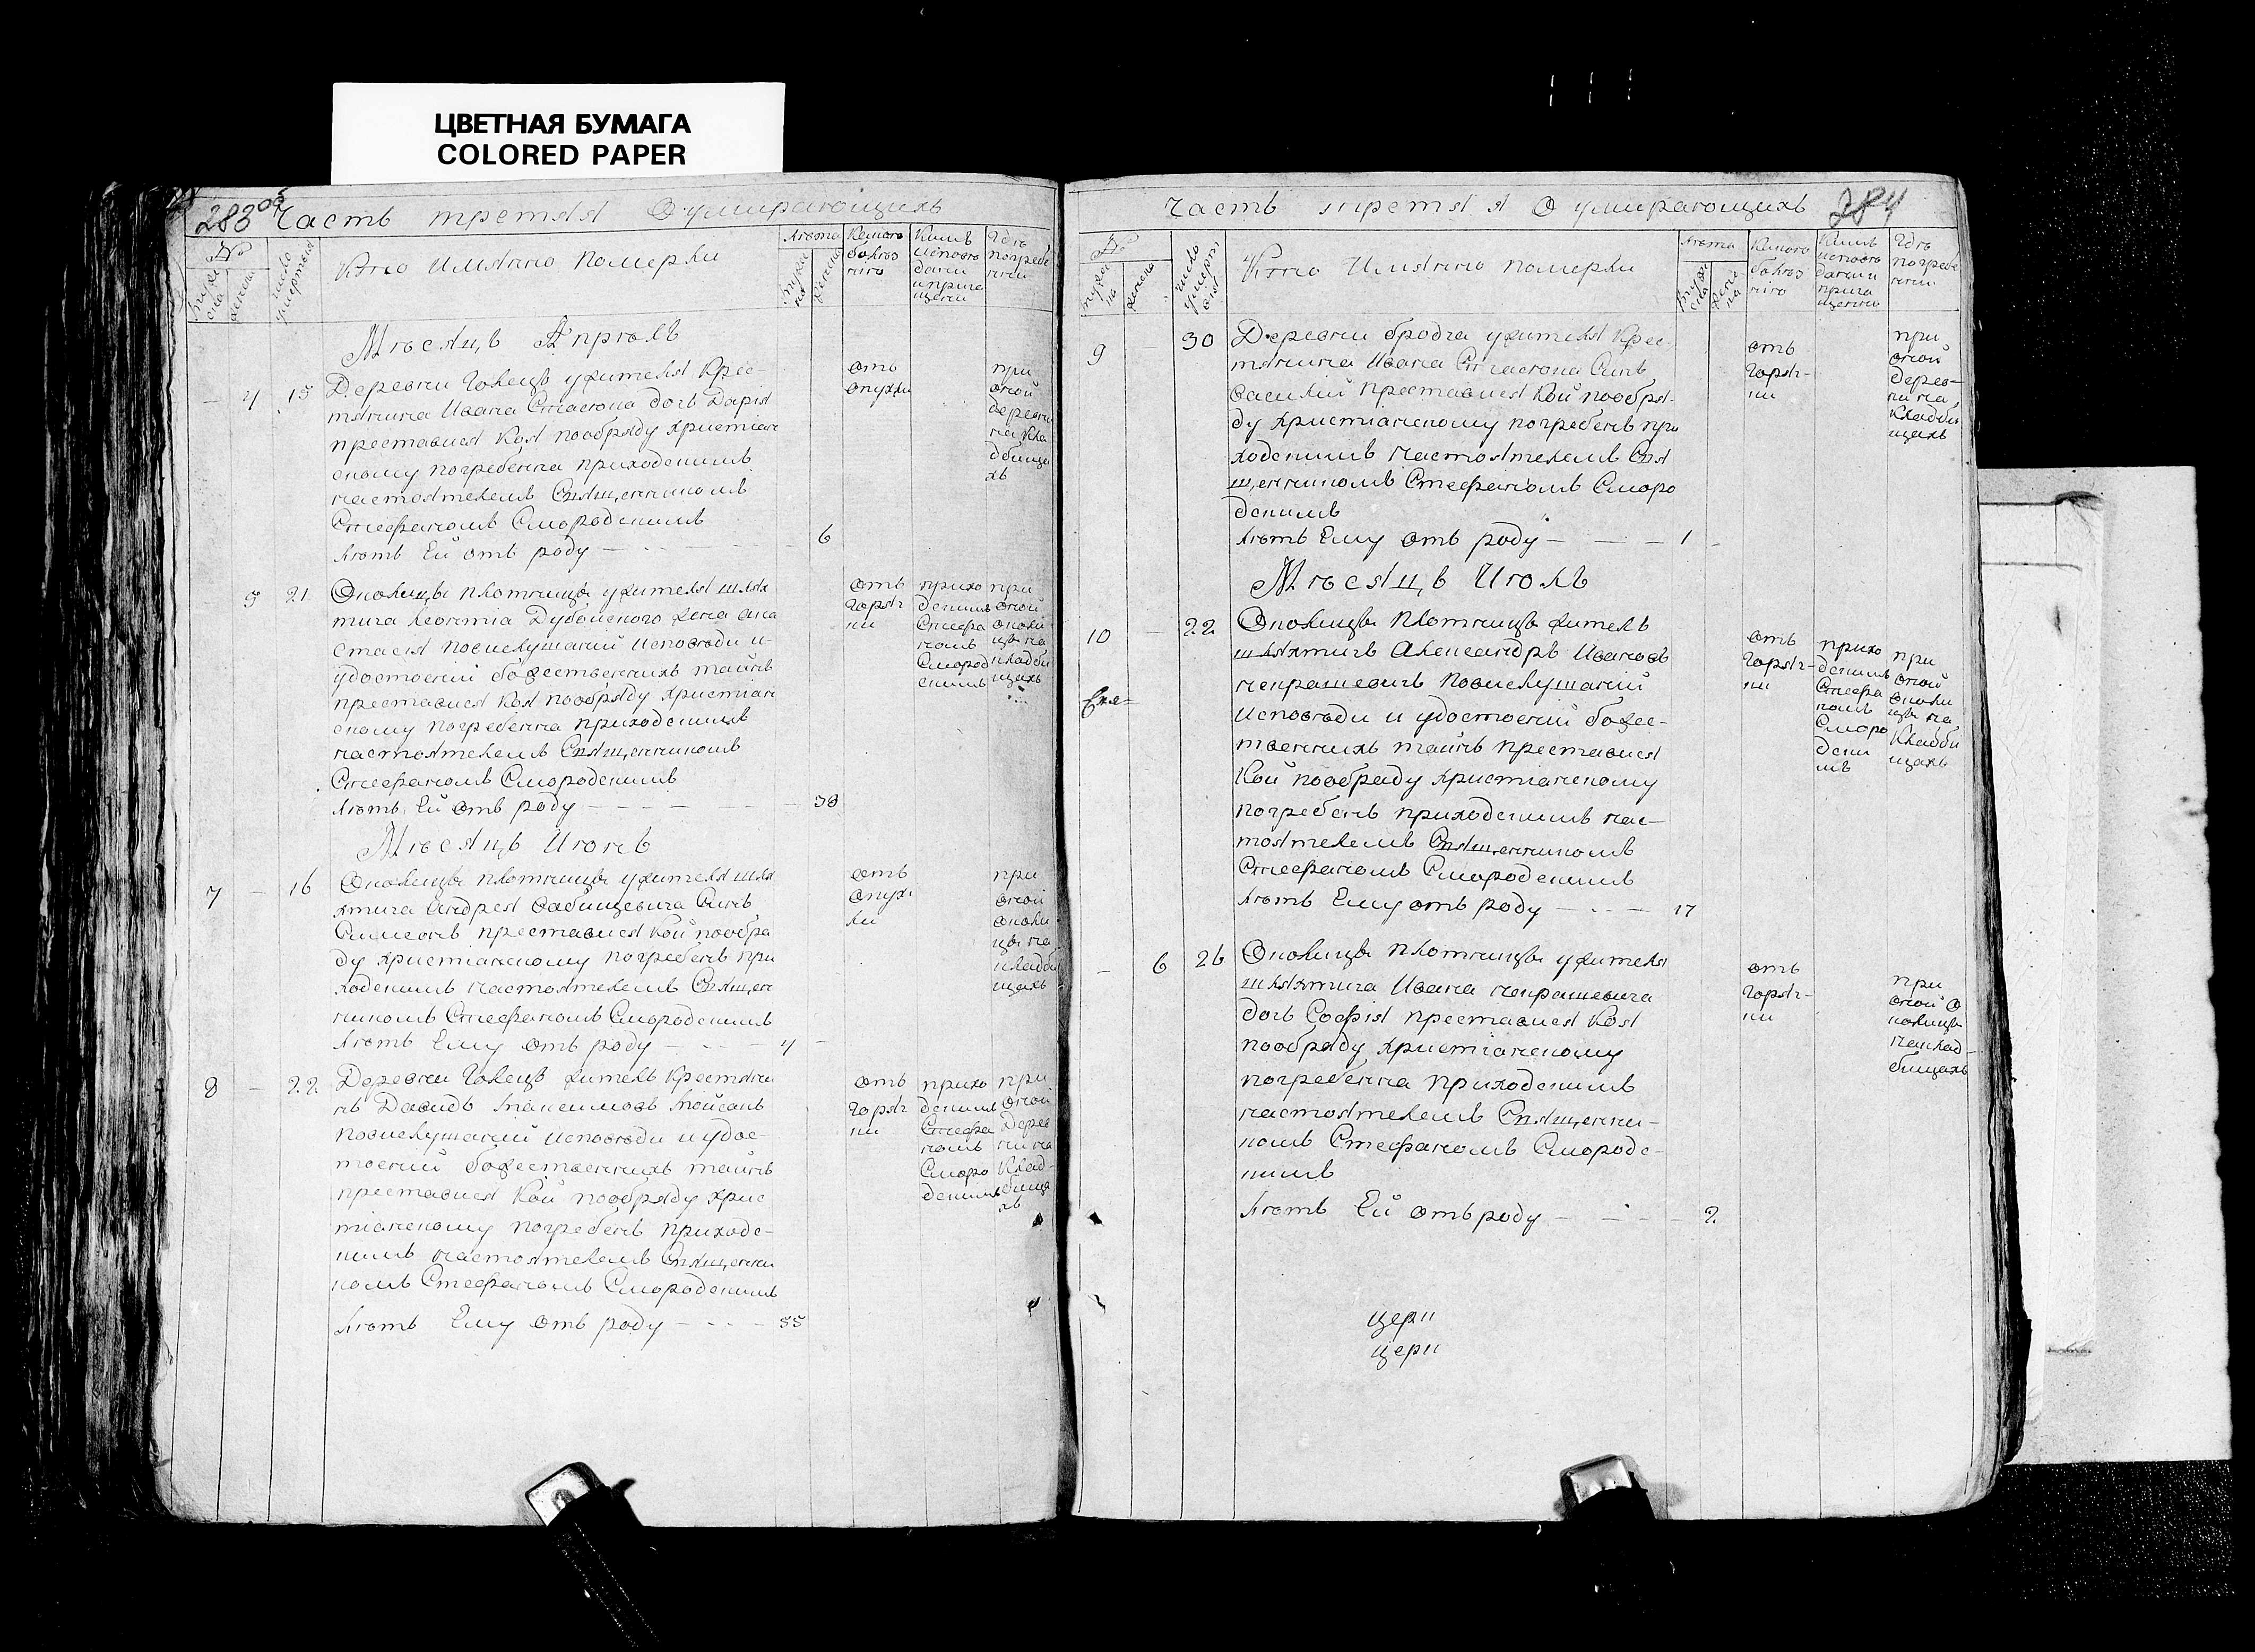 ЦВЕТНАЯ БУМАГА
COLORED PAPER
283 об
Часть третяя О умирающихъ
№
мужеска
женска
число умертвія
Кто имянно померли
лѣта
мужеска
женска
Какою болѣзнію
Кимъ исповѣданы и пріча щены
Гдѣ погребены
Мѣсяцъ Апрѣль
4
15
Деревни Голецъ ужителя Крес-
тянина Ивана Стасюна дочь Дарія
преставися коя пообряду християн
скому погребенна приходскимъ
настоятелемъ Священникомъ
Стефаномъ Смородскимъ
лѣтъ Ей отъ роду
6
отъ
опухли
при
оной
деревни
на кла
дбища
хъ
5
21
Околицы плотницы ужителя шлях
тича Леонтія Дубойского жена ана
стасія повислушаний исповѣди и
удостоений божественнихъ тайнъ
преставися коя пообряду християн
скому погребенна приходскимъ
настоятелемъ Священникомъ
Стефаномъ Смородскимъ
лѣтъ Ей отъ роду
38
отъ
горяч
ки
прихо
дскимъ
Стефа
номъ
Смород
скимъ
при
оной
околи
цы на
кладби
щахъ
Мѣсяцъ Июнь
7
16
Околицы плотницы ужителя шля
хтича Андрея Сабищевича Синъ
Симеонъ преставися кой пообря
ду християнскому погребенъ при
ходскимъ настоятелемъ Священ
никомъ Стефаномъ Смородскимъ
лѣтъ Ему отъ роду
4
отъ
опух
ли
при
оной
околи
цы на
кладби
щахъ
8
22
Деревни Голецъ житель крестяни
нъ Давидъ Максимовъ Мойсакъ
повислушаний исповѣди и удос-
тоений божественнихъ тайнъ
преставися кой пообряду хрис
тианскому погребенъ приходс-
кимъ настоятелемъ Священни
комъ Стефаномъ Смородскимъ
лѣтъ Ему отъ роду
55
отъ
горяч
ки
прихо
дскимъ
Стефа
номъ
Сморо
дскимъ
при
оной
Дерев
ни на
Клад-
бища
хъ
Часть третяя О умирающихъ
284
№
мужеска
женска
число умертвія
Кто Имянно померли
лѣта
мужеска
женска
Какою болѣзнію
Кимъ исповѣданы и прича щенны
Гдѣ погребены
9
30
Деревни бродча ужителя Крес-
тянина Ивана Стасюна Синъ
Василий преставися кой пообря-
ду християнскому погребенъ при
ходскимъ настоятелемъ Свя
щенникомъ Стефаномъ Сморо
дскимъ
лѣтъ Ему отъ роду
1
отъ
горяч-
ки
при
оной
дерев-
ни на
кладби
щахъ
Мѣсяцъ Июль
10
22
Околицы плотницы житель
шляхтичъ Александръ Ивановъ
ненрашевичъ повислушаний
исповѣди и удостоений божес-
твеннихъ тайнъ преставися
кой пообряду християнскому
погребенъ приходскимъ нас-
тоятелемъ Священникомъ
Стефаномъ Смородскимъ
лѣтъ Ему отъ роду
17
отъ
горяч-
ки
прихо
дскимъ
Стефа
номъ
Сморо
дски
мъ
при
оной
околи
цы на
Кладби
щахъ
6
26
Околицы плотницы ужителя
шляхтича Ивана ненрашевича
дочь Софія преставися коя
пообряду християнскому
погребенна приходскимъ
настоятелемъ Священни-
комъ Стефаномъ Смородс-
кимъ
лѣтъ Ей отъ роду
2
отъ
горяч-
ки
при
оной о
колицы
наклад-
бищахъ